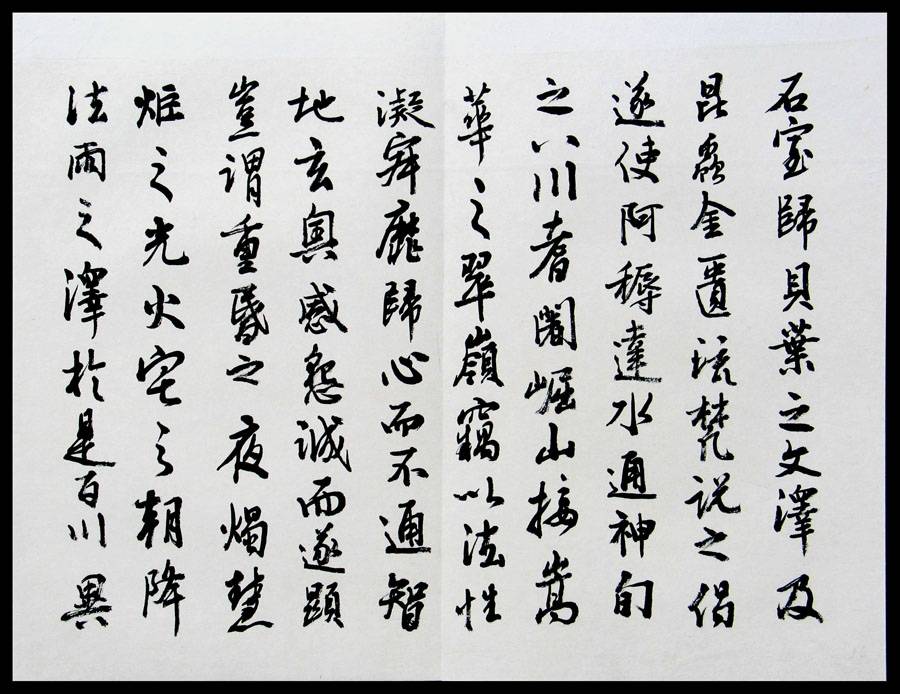 石室歸貝葉之文澤及
昆蟲金匱流梵説之偈
遂使阿耨達水通神甸
之八川耆闍崛山接嵩
華之翠嶺竊以法性
凝寂靡歸心而不通智
地玄奥感懇誠而遂顯
豈謂重昏之夜燭慧
炬之光火宅之朝降
法雨之澤於是百川異